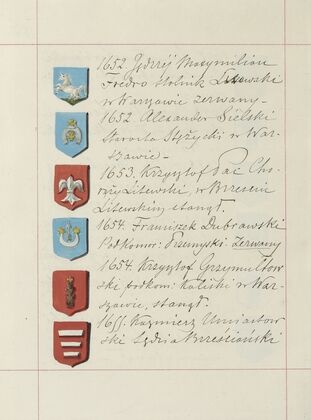 1652 Jędrzéj Maxymilian
Fredro stolnik Lwowski
w Warszawie zerwany -
1652 Alexander Sielski
Starosta Stężycki w War-
szawie -
1653. Krzysztof Pac Cho-
rąży Litewski, w Brześciu
Litewskim stanął.
1654. Franciszek Dubrawski
Podkomor: Przemyski. Zerwany
1654. Krzysztof Grzymułtow
ski, podkom: Kaliski w War-
szawie, stanął.
1655. Kazimierz Umiastow
ski Sędzia Brześciański